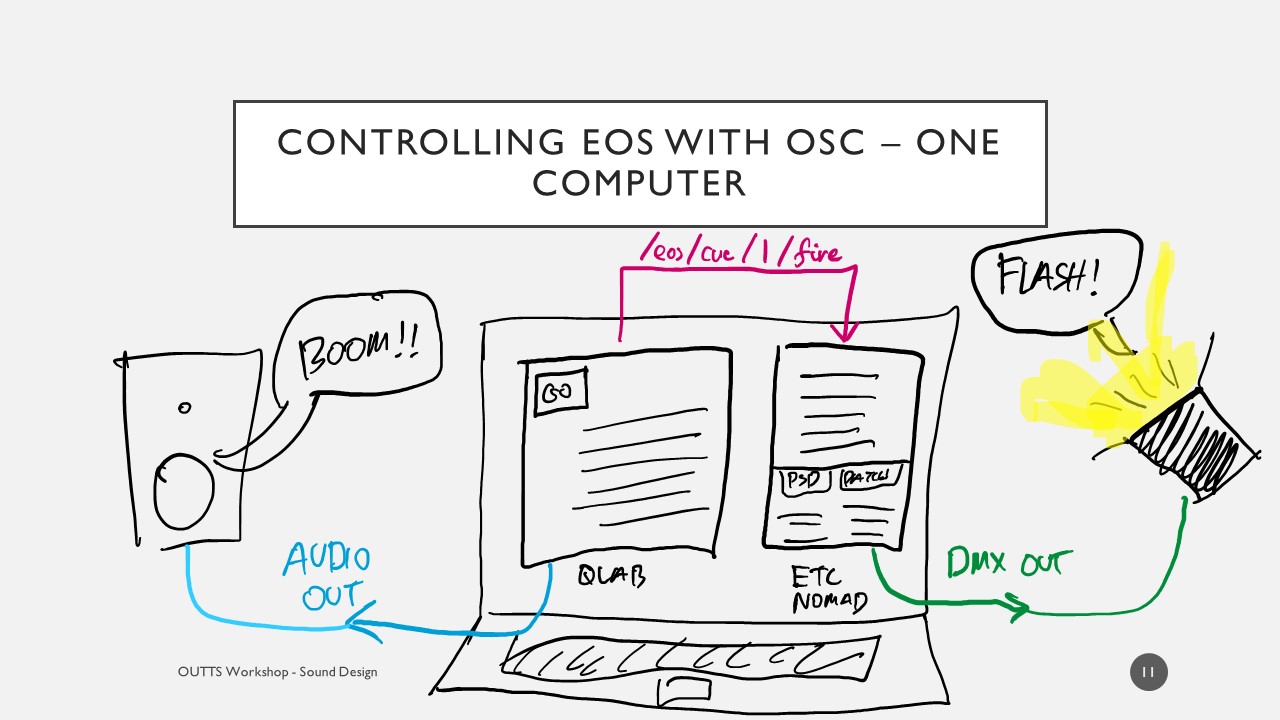 CONTROLLING EOS WITH OSC – ONE
COMPUTER
/eos/cue/1/fire
FLASH!
BOOM!!
GO
PSD PATCH
AUDIO
OUT
QLAB
ETC
NOMAD
DMX OUT
OUTTS Workshop - Sound Design
11